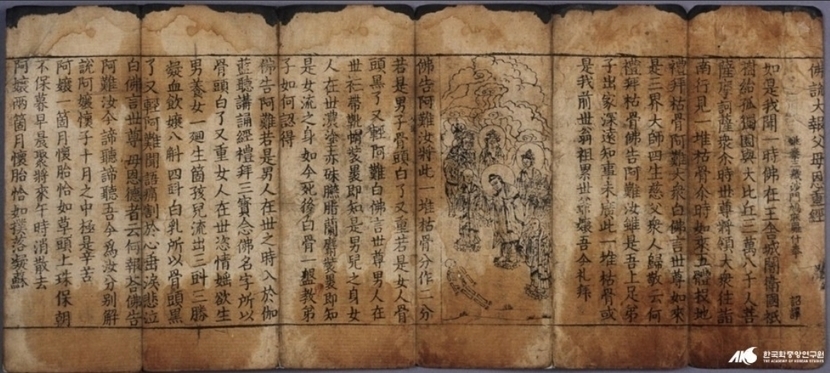 佛說大報父母恩重經
姚秦三藏沙門鳩摩羅什奉 詔譯
如是我聞一時佛在王舍城闍衛國祇
樹給孤獨園與大比丘三萬八千人菩
薩摩訶薩衆尒時世尊將領大衆往詣
南行見一堆枯骨尒時如來五體投地
禮拜枯骨阿難大衆白佛言世尊如來
是三界大師四生慈父衆人歸敬云何
禮拜枯骨佛告阿難汝雖是吾上足弟
子出家深遠知事未廣此一堆枯骨或
是我前世翁祖累世爺孃吾今礼拜
佛告阿難汝將此一堆枯骨分作二分
若是男子骨頭白了又重若是女人骨
頭黑了又輕阿難白佛言世尊男人在
世衫帶鞋帽裝裹即知是男兒之身女
人在世濃塗赤硃臙脂蘭麝裝裹即知
是女流之身如今死後白骨一盤敎弟
子如何認得
佛告阿難若是男人在世之時入於伽
藍聽講誦經禮拜三寶念佛名字所以
骨頭白了又重女人在世恣情婬欲生
男養女一廻生箇孩兒流出三㪷三勝
凝血飮孃八斛四㪷白乳所以骨頭黑
了又輕阿難聞語痛割於心垂淚悲泣
白佛言世尊母恩德者云何報答佛告
阿難汝今諦聽諦聽吾今爲汝分別解
說阿孃懷子十月之中極是辛苦
阿孃一箇月懷胎恰如草頭上珠保朝
不保暮早晨聚將來午時消散去
阿孃兩箇月懷胎恰如撲落凝酥
AKS 한국학중앙연구원
THE ACADEMY OF KOREAN STUDIES